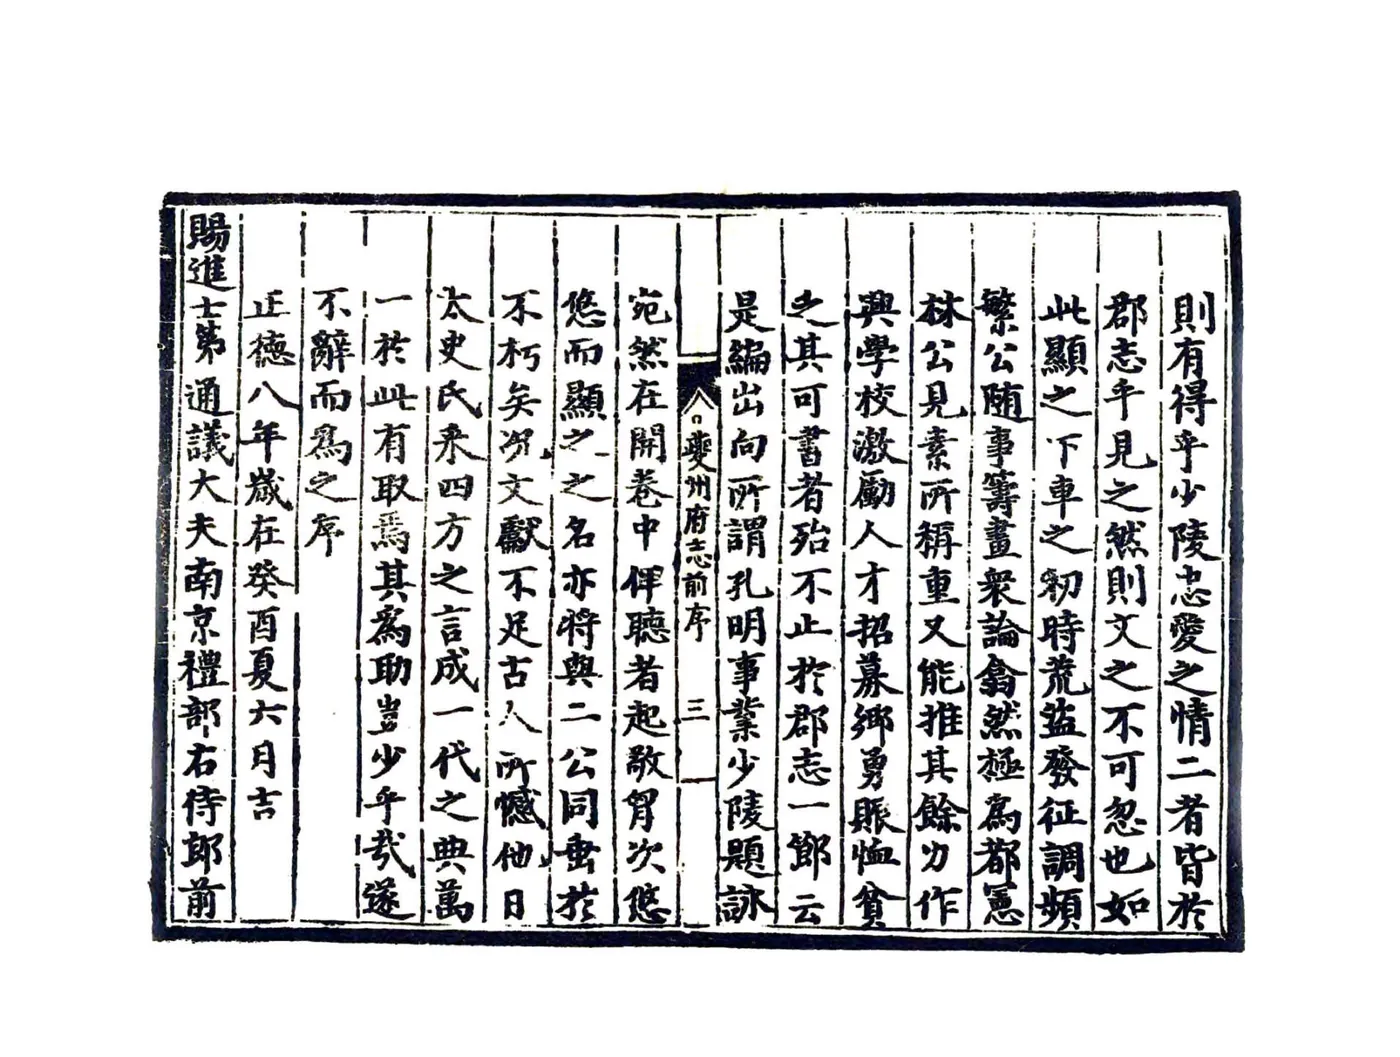 則有得乎少陵忠愛之情二者皆於
郡志乎見之然則文之不可忽也如
此顯之下車之初時荒盜發征調頻
繁公随事籌畫衆論翕然極為都憲
林公見素所稱重又能推其餘力作
興學校激勵人才招募鄉勇賑恤貧
乏其可書者殆不止於郡志一節云
是編出向所謂孔明事業少陵題詠
夔州府志前序 三
宛然在開卷中俾聽者起敬胷次悠
悠而顯之之名亦將與二公同垂於
不朽矣況文獻不足古人所憾他日
太史氏采四方之言成一代之典萬
一於此有取焉其為助豈少乎哉遂
不辭而為之序
正德八年歲在癸酉夏六月吉
賜進士第通議大夫南京禮部右侍郎前